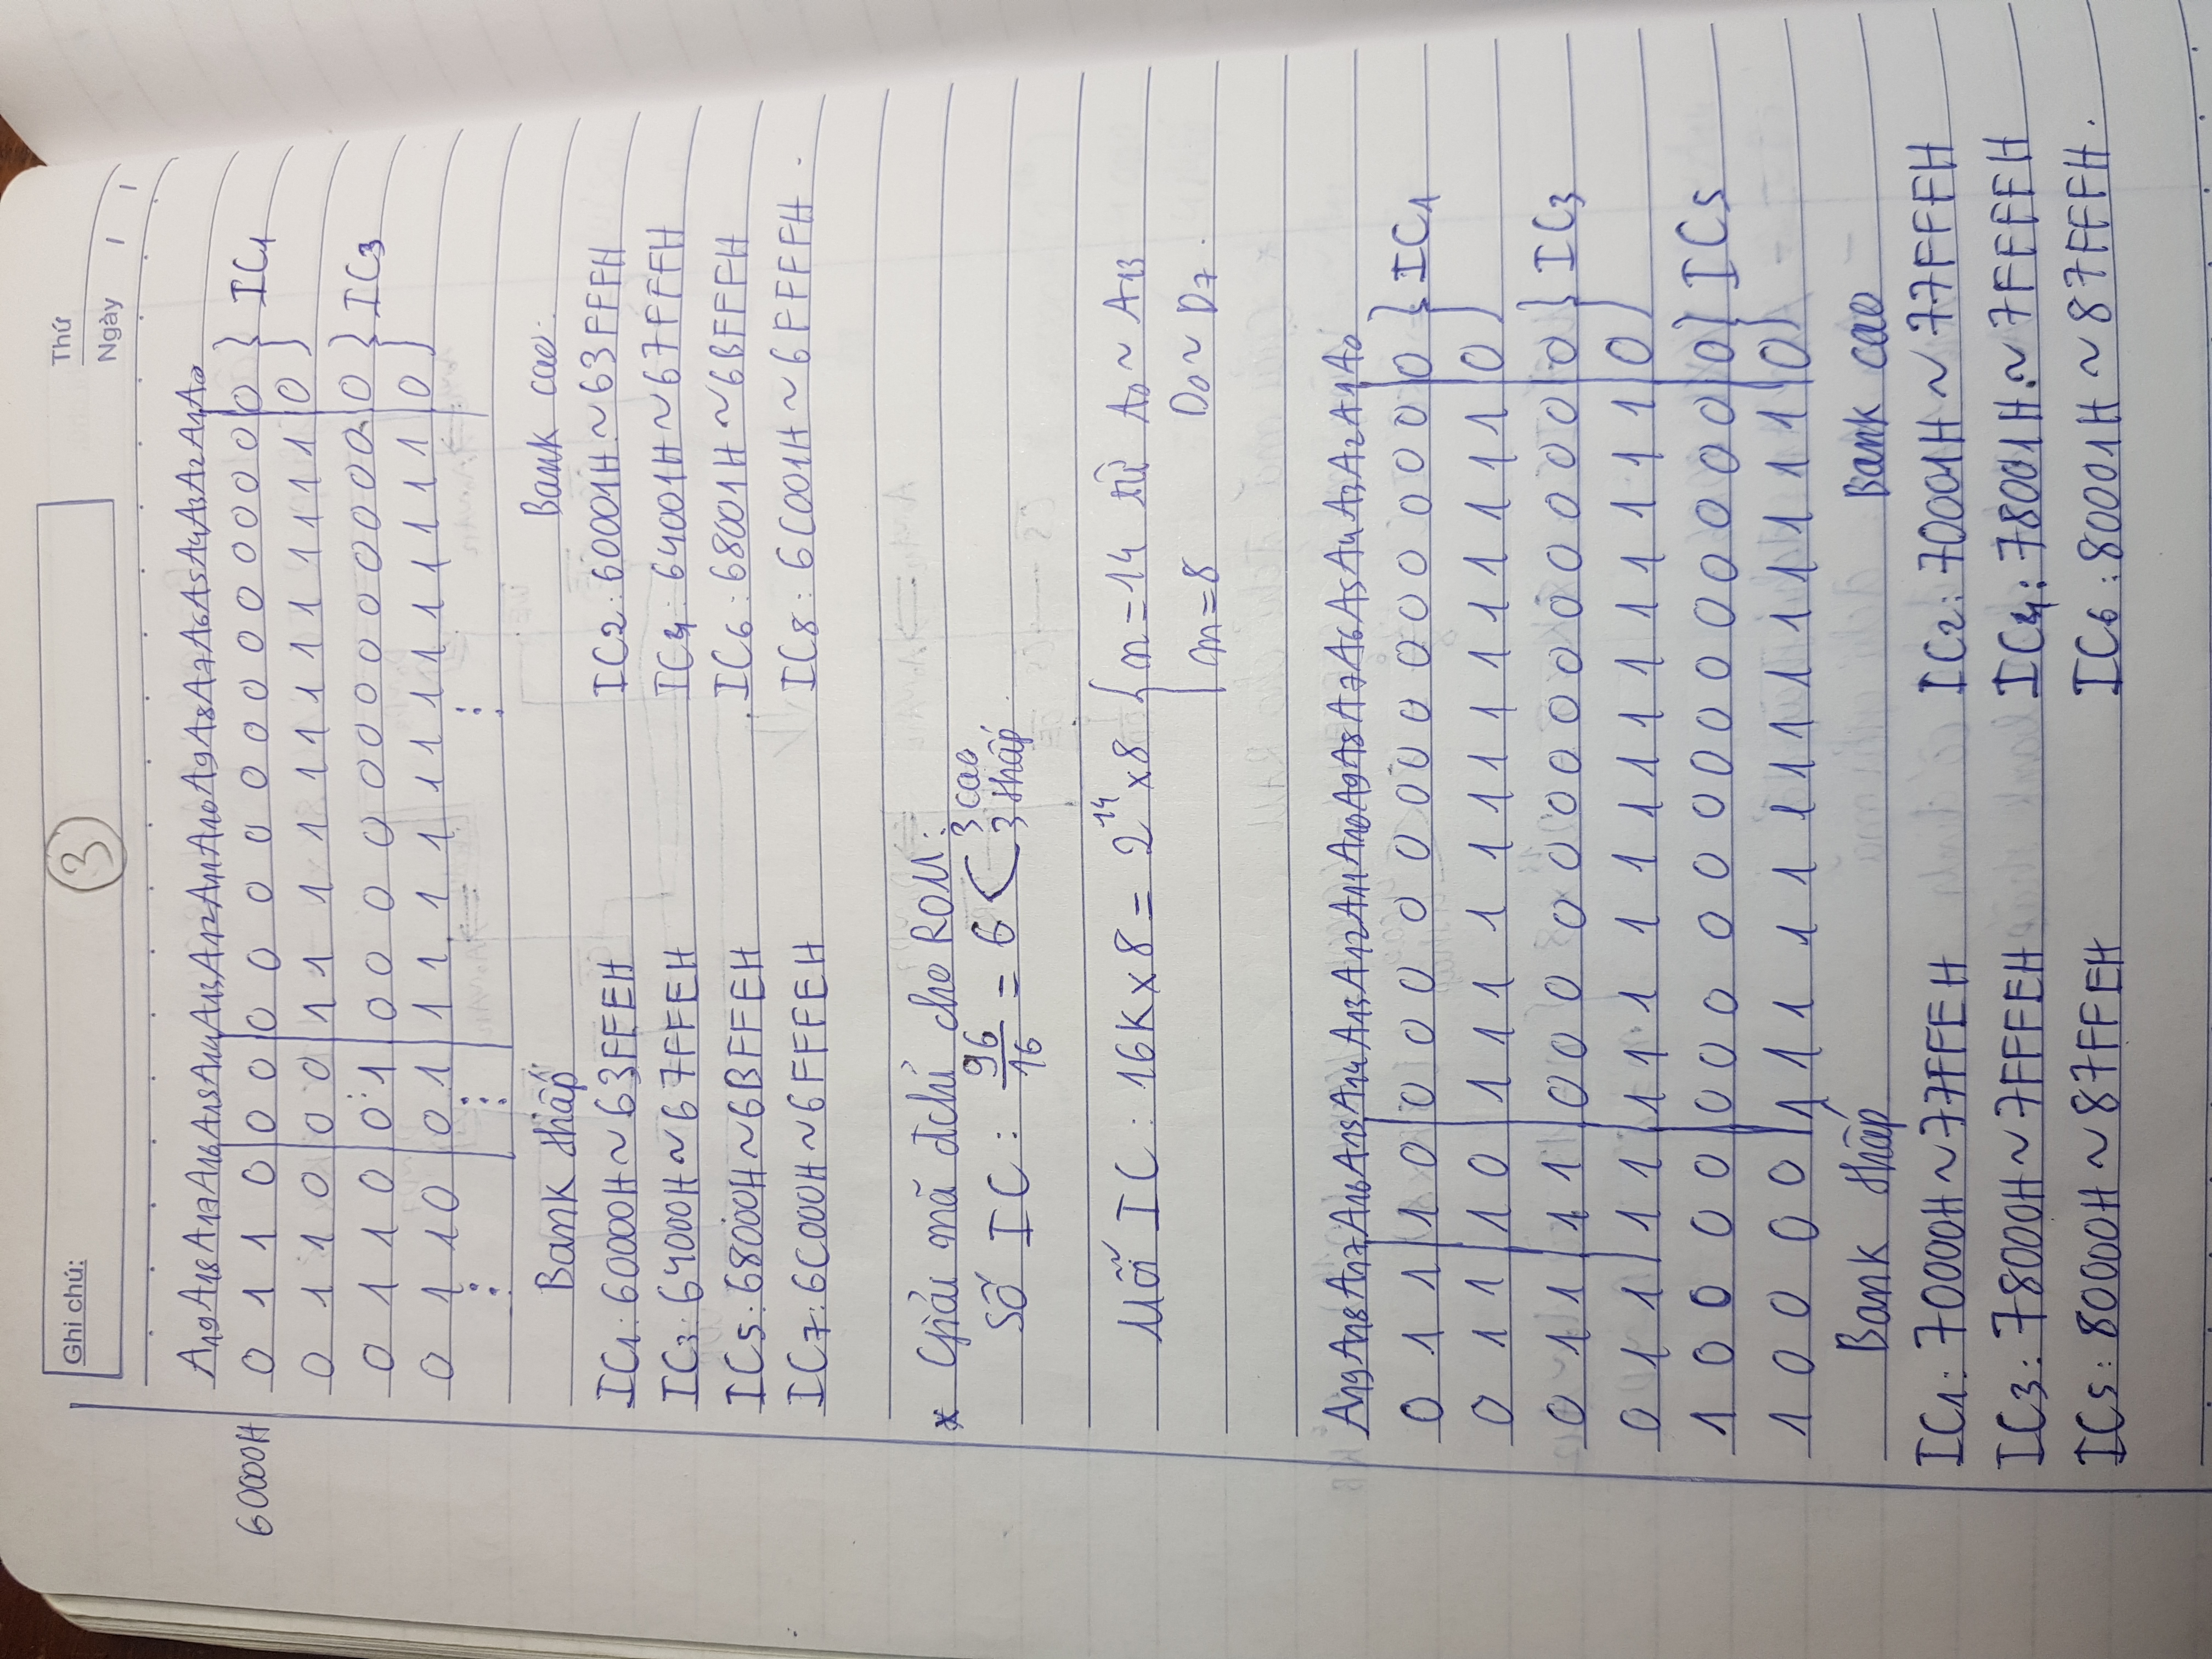 Ghi chú: 3 Thứ
Ngày / /
A19 A18 A17 A16 A15 A14 A13 A12 A11 A10 A9 A8 A7 A6 A5 A4 A3 A2 A1 A0
60000H 0 1 1 0 0 0 0 0 0 0 0 0 0 0 0 0 0 0 0 0 } IC1
0 1 1 0 0 0 1 1 1 1 1 1 1 1 1 1 1 1 1 0
0 1 1 0 0 1 0 0 0 0 0 0 0 0 0 0 0 0 0 0 } IC3
0 1 1 0 0 1 1 1 1 1 1 1 1 1 1 1 1 1 1 0
⋮ ⋮ ⋮
Bank thấp Bank cao
IC1: 60000H ~ 63FFEH IC2: 60001H ~ 63FFFH
IC3: 64000H ~ 67FFEH IC4: 64001H ~ 67FFFH
IC5: 68000H ~ 6BFFEH IC6: 68001H ~ 6BFFFH
IC7: 6C000H ~ 6FFFEH IC8: 6C001H ~ 6FFFFH
* Giải mã đchỉ cho ROM:
Số IC: 96/16 = 6 < 3 cao 3 thấp
Mỗi IC: 16K x 8 = 2^14 x 8 { n = 14 từ A0 ~ A13
m = 8 D0 ~ D7.
A19 A18 A17 A16 A15 A14 A13 A12 A11 A10 A9 A8 A7 A6 A5 A4 A3 A2 A1 A0
0 1 1 1 0 0 0 0 0 0 0 0 0 0 0 0 0 0 0 0 } IC1
0 1 1 1 0 1 1 1 1 1 1 1 1 1 1 1 1 1 1 0
0 1 1 1 1 0 0 0 0 0 0 0 0 0 0 0 0 0 0 0 } IC3
0 1 1 1 1 1 1 1 1 1 1 1 1 1 1 1 1 1 1 0
1 0 0 0 0 0 0 0 0 0 0 0 0 0 0 0 0 0 0 0 } IC5
1 0 0 0 0 1 1 1 1 1 1 1 1 1 1 1 1 1 1 0
Bank thấp Bank cao
IC1: 70000H ~ 77FFEH IC2: 70001H ~ 77FFFH
IC3: 78000H ~ 7FFFEH IC4: 78001H ~ 7FFFFH
IC5: 80000H ~ 87FFEH IC6: 80001H ~ 87FFFH.